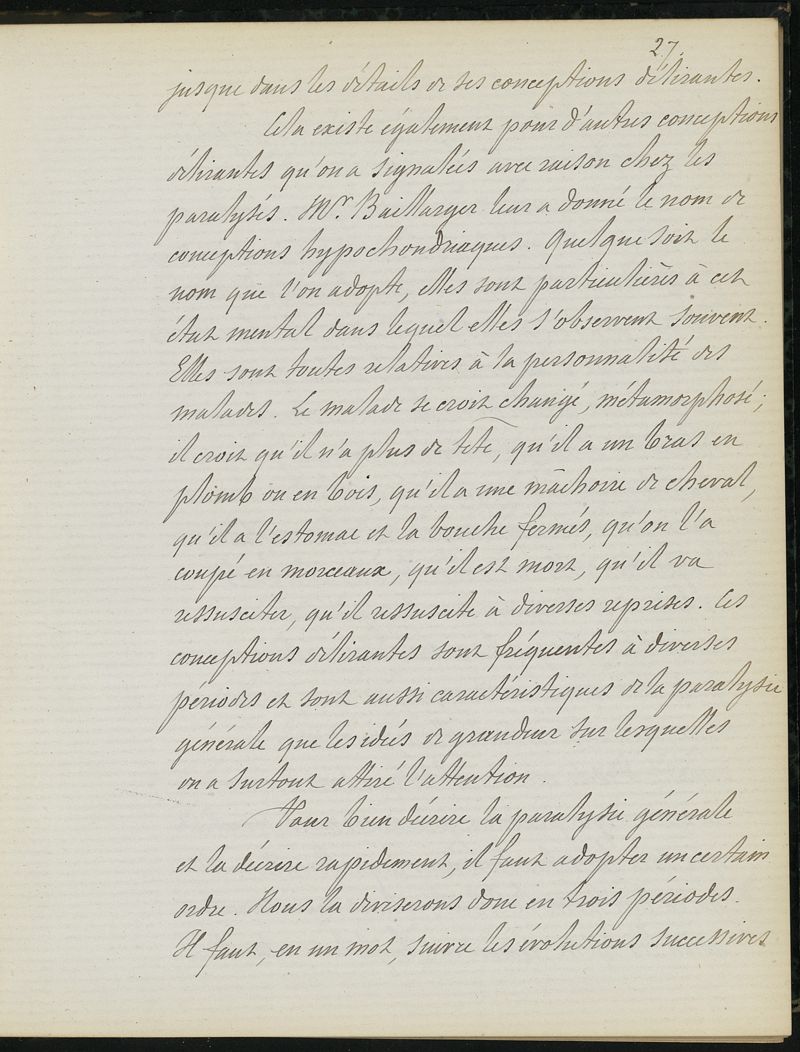 27.
jusque dans les détails de ses conceptions délirantes.
Cela existe également pour d'autres conceptions
délirantes qu'on a signalées avec raison chez les
paralysés. Mr. Baillarger leur a donné le nom de
conceptions hypochondriaques. Quelque soit le
nom que l'on adopte, elles sont particulières à cet
état mental dans lequel elles s'observent souvent.
Elles sont toutes relatives à la personnalité des
malades. Le malade se croit changé, métamorphosé;
il croit qu'il n'a plus de tête, qu'il a un bras en
plomb ou en bois, qu'il a une mâchoire de cheval,
qu'il a l'estomac et la bouche fermés, qu'on l'a
coupé en morceaux, qu'il est mort, qu'il va
ressusciter, qu'il ressuscite à diverses reprises. Ces
conceptions délirantes sont fréquentes à diverses
périodes et sont aussi caractéristiques de la paralysie
générale que les idées de grandeur sur lesquelles
on a surtout attiré l'attention.
Pour bien décrire la paralysie générale
et la décrire rapidement, il faut adopter un certain
ordre. Nous la diviserons donc en trois périodes.
Il faut, en un mot, suivre les évolutions successives